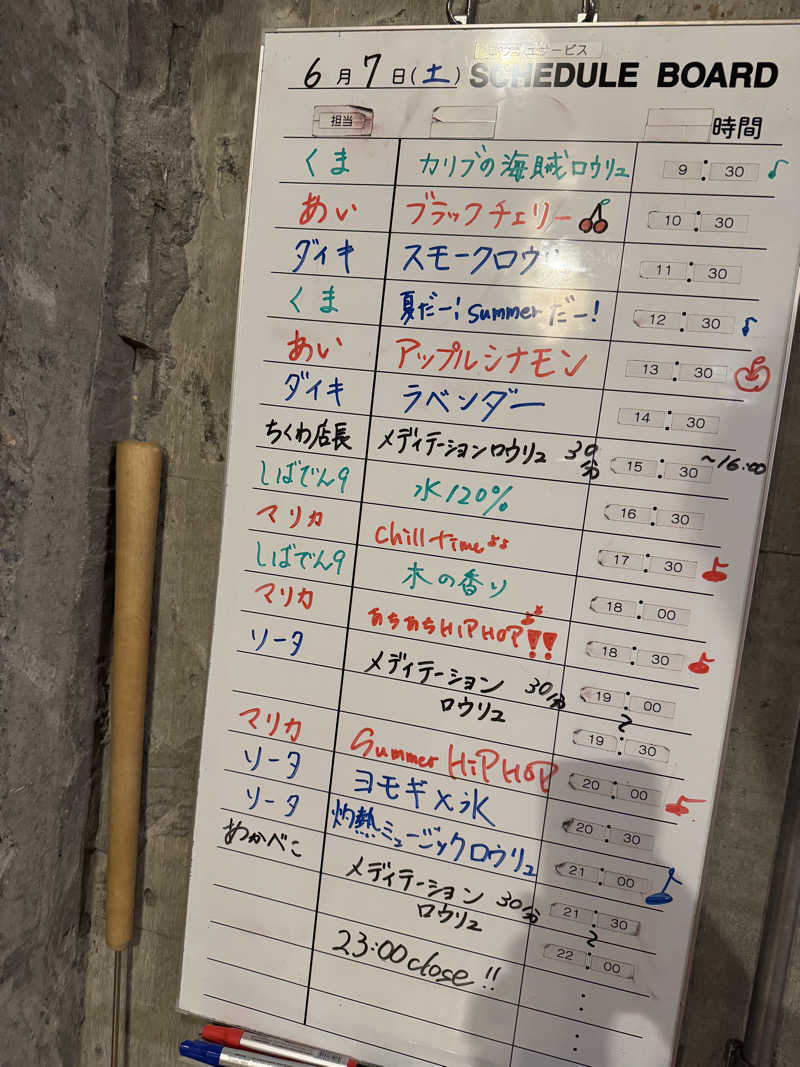 サービス
6月7日(土) SCHEDULE BOARD
担当 時間
くま カリブの海賊ロウリュ 9:30
あい ブラックチェリー 10:30
ダイキ スモークロウリュ 11:30
くま 夏だー!summerだー! 12:30
あい アップルシナモン 13:30
ダイキ ラベンダー 14:30
ちくわ店長 メディテーションロウリュ 30分 15:30 〜16:00
しばでん9 水120% 16:30
マリカ chill time 17:30
しばでん9 木の香り 18:00
マリカ あちあちHIPHOP!! 18:30
ソータ メディテーションロウリュ 30分 19:00
〜
19:30
マリカ Summer HIPHOP 20:00
ソータ ヨモギ×氷 20:30
ソータ 灼熱ミュージックロウリュ 21:00
めかべこ メディテーションロウリュ 30分 21:30
〜
23:00close!! 22:00